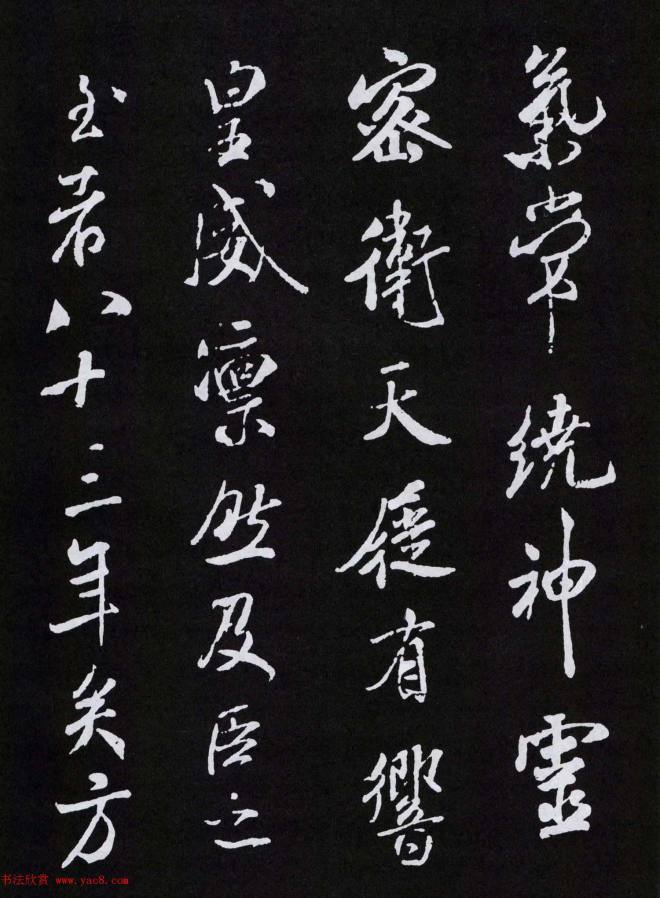 氣常繞神靈
密衛天從有響
皇威凛然及臣之
至者八十三年矣方
书法欣赏 www.yac8.com